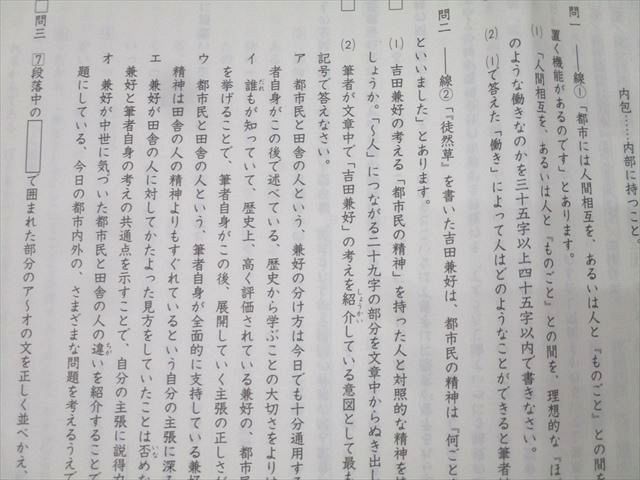 内包……内部に持つこと。
問一 ――線①「都市には人間相互を、あるいは人と『ものごと』との間を
置く機能があるのです」とあります。
(1) 「人間相互を、あるいは人と『ものごと』との間を、理想的な『ほ
のような働きなのかを三十五字以上四十五字以内で書きなさい。
(2) (1)で答えた「働き」によって人はどのようなことができると筆者は
問二 ――線②「『徒然草』を書いた吉田兼好は、都市民の精神は『何ごと
といいました」とあります。
(1) 吉田兼好の考える「都市民の精神」を持った人と対照的な精神を持
しょうか。「〜人」につながる二十九字の部分を文章中からぬき出し
(2) 筆者が文章中で「吉田兼好」の考えを紹介しょうかいしている意図として最も
記号で答えなさい。
ア 都市民と田舎の人という、兼好の分け方は今日でも十分通用する
者自身がこの後で述べている、歴史から学ぶことの大切さをよりは
イ 誰だれもが知っていて、歴史上、高く評価されている兼好の、都市民
を挙げることで、筆者自身がこの後、展開していく主張の正しさが
ウ 都市民と田舎の人という、筆者自身が全面的に支持している兼好
精神は田舎の人の精神よりもすぐれているという自分の主張に深
エ 兼好が田舎の人に対してかたよった見方をしていたことは否いなめな
兼好と筆者自身の考えの共通点を示すことで、自分の主張に説得力
オ 兼好が中世に気づいた都市民と田舎の人の違ちがいを紹介することで
題にしている、今日の都市内外の、さまざまな問題を考えるうえで
問三 ⑦段落中の で囲まれた部分のア〜オの文を正しく並べかえ、